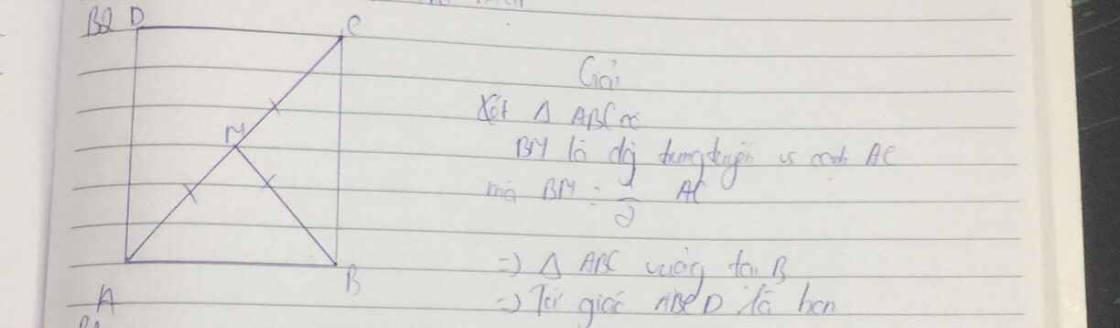 B2 D C
Giải
Xét Δ ABC có
M
BM là đg trung tuyến vs cạnh AC
mà BM = 1/2 AC
=) Δ ABC vuông tại B
A B
=) Tứ giác ABCD là hcn